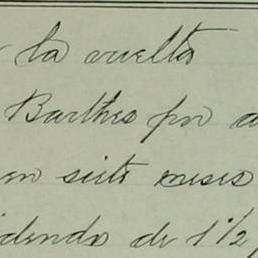 la vuelta
Barthes por
en siete meses
idendo de 1 1/2